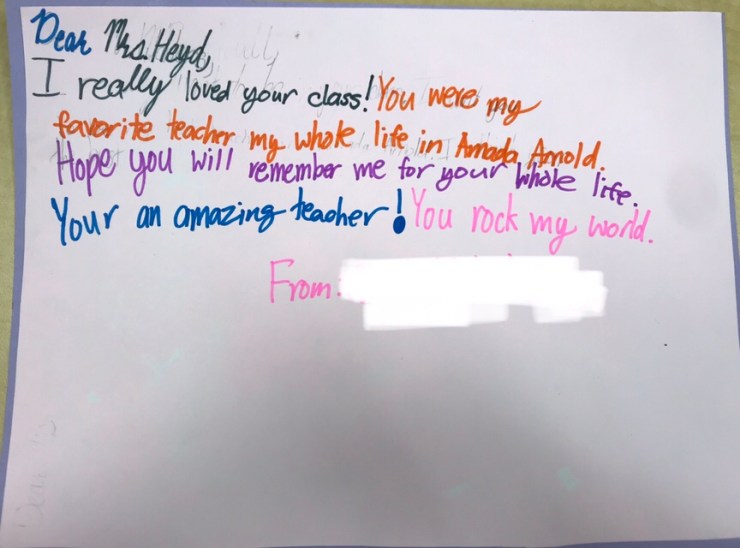 Dear Mrs. Heyd,
I really loved your class! You were my
favorite teacher my whole life in Amada Arnold.
Hope you will remember me for your whole life.
Your an amazing teacher! You rock my world.
From